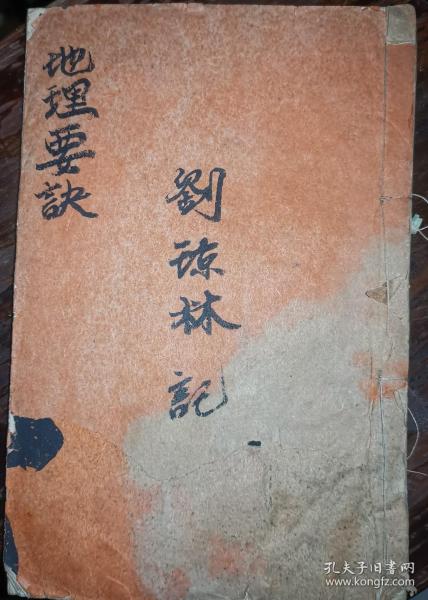 地理要訣
劉琼林記
孔夫子旧书网
www.kongfz.com